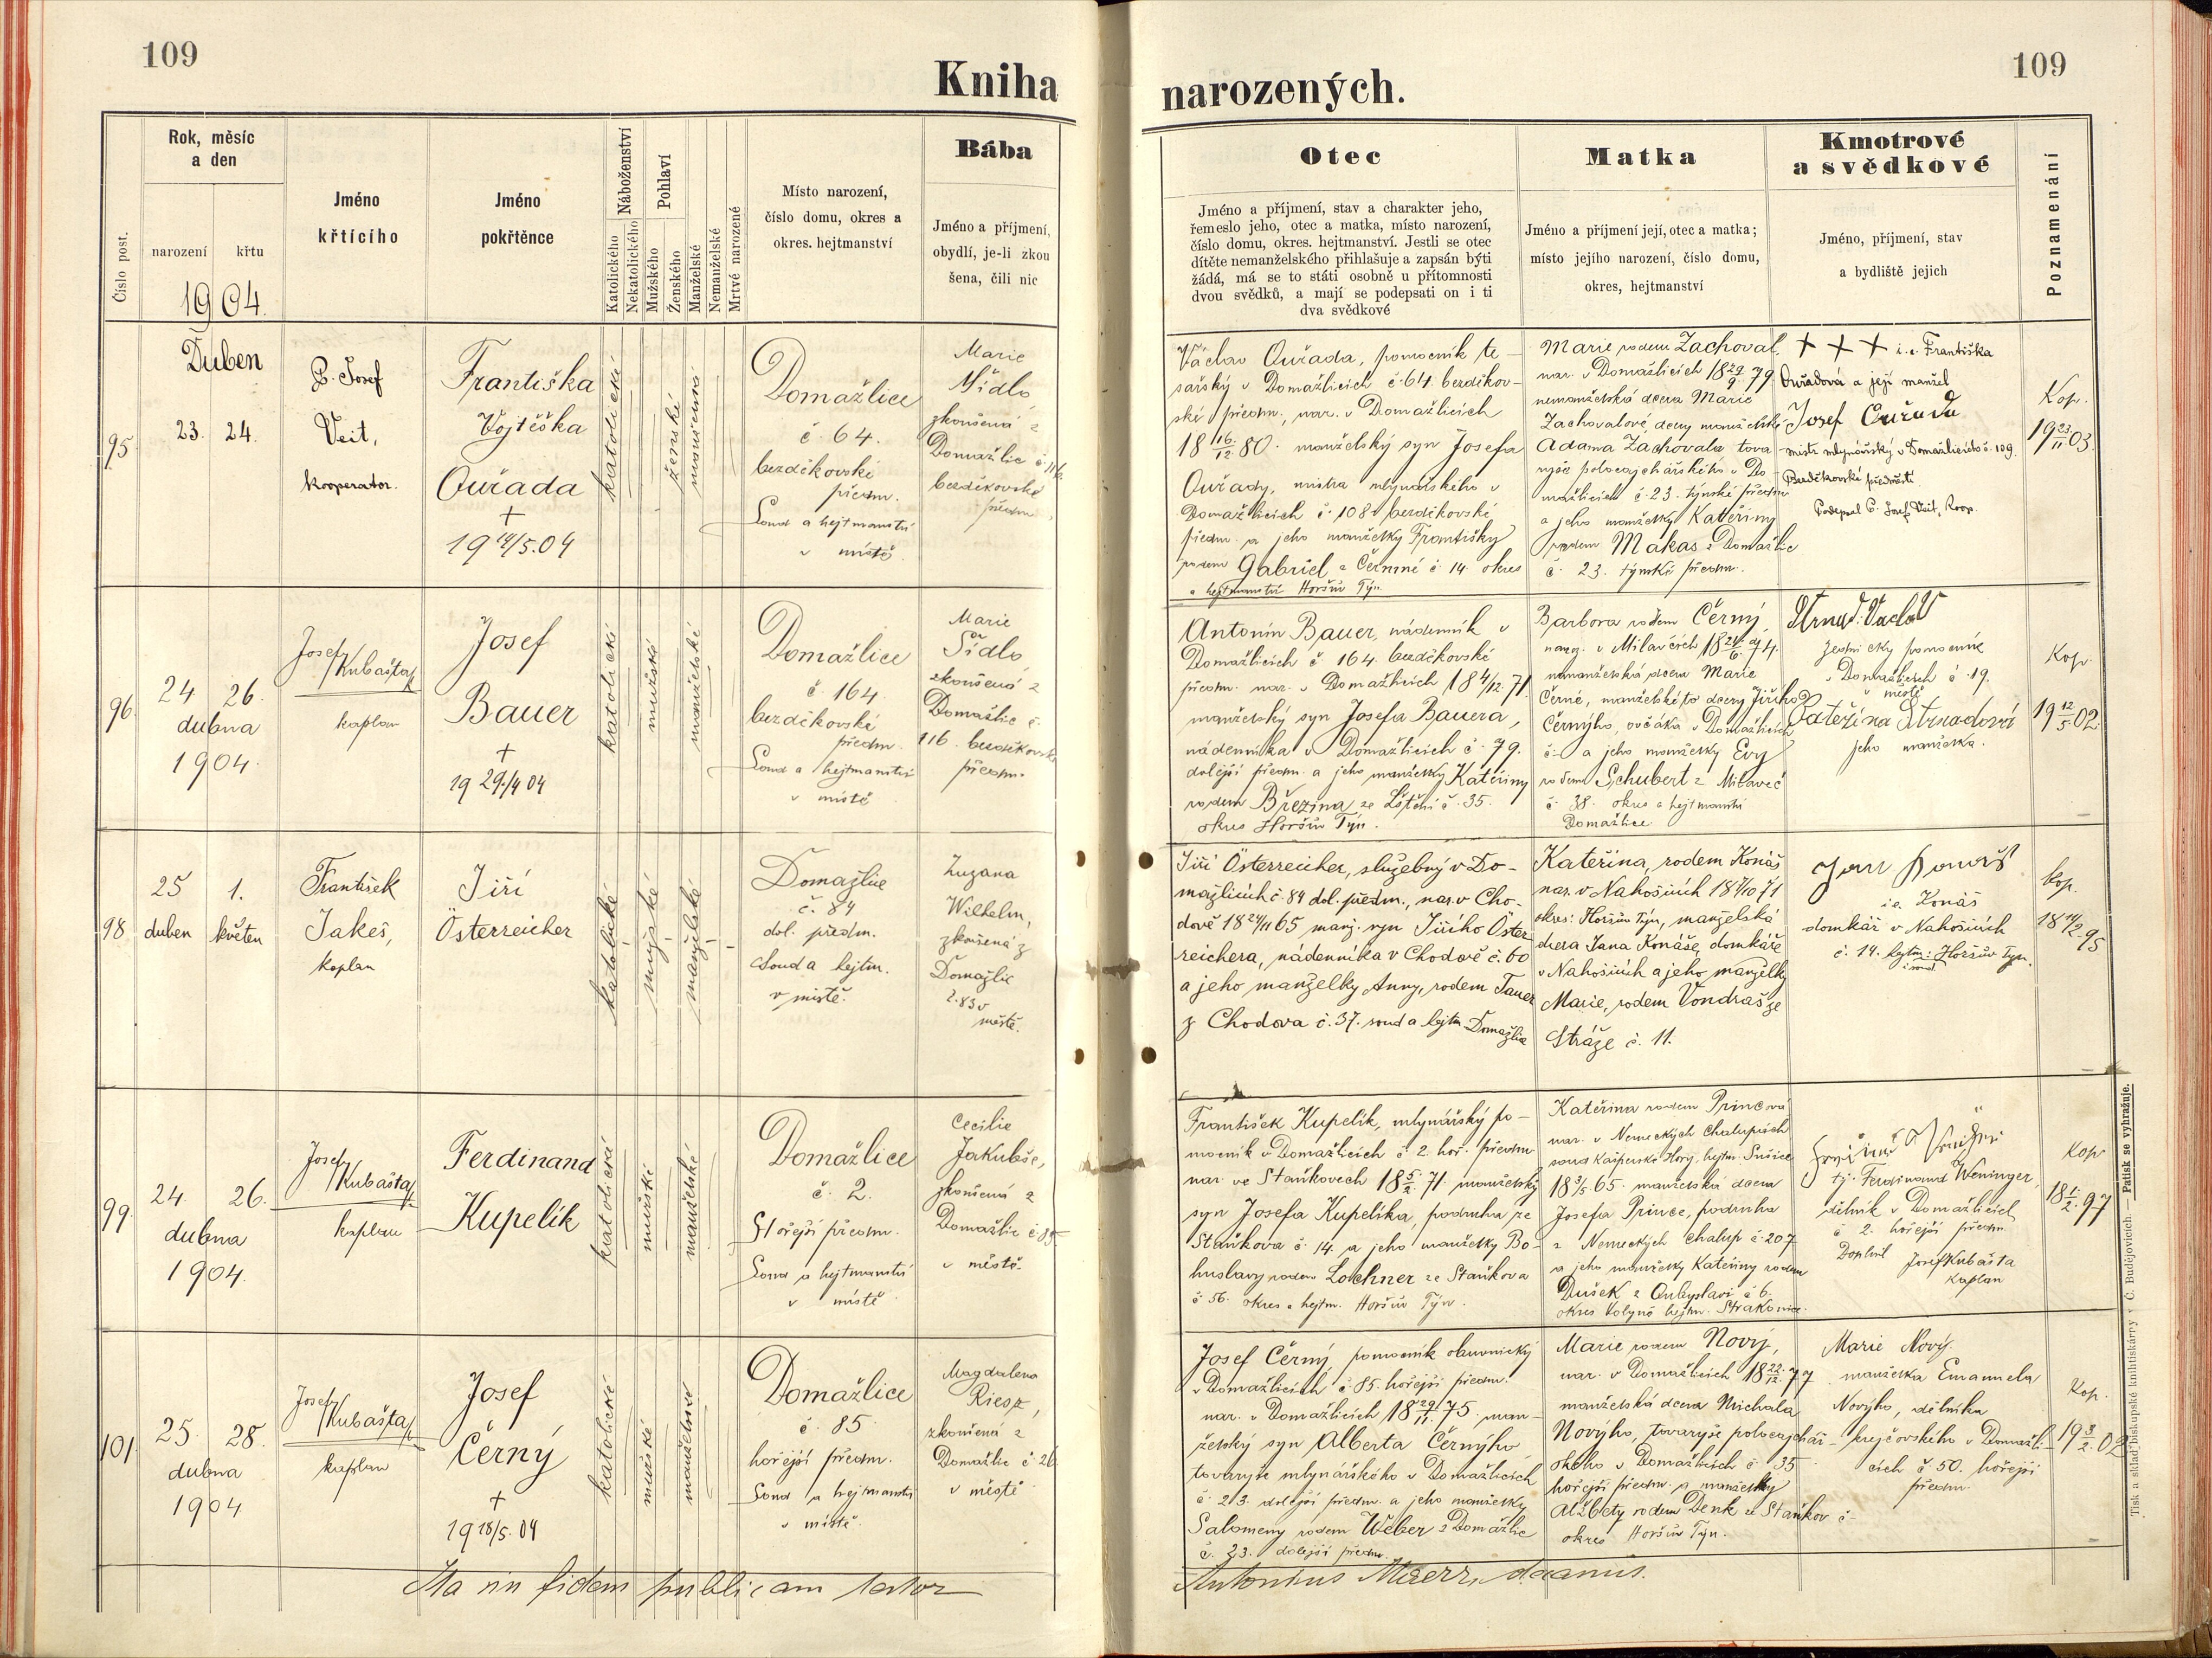 109
109
Kniha
narozených.
Číslo post.
Rok, měsíc
a den
narození křtu
1904.
Jméno
křtícího
Jméno
pokřtěnce
Náboženství
Katolického
Nekatolického
Pohlaví
Mužského
Ženského
Manželské
Nemanželské
Mrtvé narozené
Místo narození,
číslo domu, okres a
okres. hejtmanství
Bába
Jméno a příjmení,
obydlí, je-li zkou
šena, čili nic
Otec
Jméno a příjmení, stav a charakter jeho,
řemeslo jeho, otec a matka, místo narození,
číslo domu, okres. hejtmanství. Jestli se otec
dítěte nemanželského přihlašuje a zapsán býti
žádá, má se to státi osobně u přítomnosti
dvou svědků, a mají se podepsati on i ti
dva svědkové
Matka
Jméno a příjmení její, otec a matka;
místo jejího narození, číslo domu,
okres, hejtmanství
Kmotrové
a svědkové
Jméno, příjmení, stav
a bydliště jejich
Poznamenání
95
Duben
23. 24.
P. Josef
Veit,
kooperator.
Františka
Vojtěška
Ouřada
+
19 14/5. 04
katolické
ženské
manželské
Domažlice
č. 64.
bezděkovské
předm.
Soud a hejtmanství
v místě.
Marie
Sídlo
zkoušená z
Domažlic č. 116
bezděkovské
předm.
Václav Ouřada, pomocník te-
sařský v Domažlicích č. 64. bezděkov-
ské předm., nar. v Domažlicích
18 16/12 80. manželský syn Josefa
Ouřady, mistra mlynářského v
Domažlicích č. 108 bezděkovské
předm. a jeho manželky Františky
rodem Gabriel z Černíné č. 14. okres
a hejtmanství Horšův Týn.
Marie rodem Zachoval,
nar. v Domažlicích 18 29/9. 79
nemanželská dcera Marie
Zachovalové, dcery manželské
Adama Zachovala tova
ryše polocajchářského v Do-
mažlicích č. 23. týnské předm.
a jeho manželky Kateřiny
rodem Makas z Domažlic
č. 23. týnské předm.
+ + + i. e. Františka
Ouřadová a její manžel
Josef Ouřada
mistr mlynářský v Domažlicích č. 109.
Bezděkovské předměstí.
Podepsal P. Josef Veit, Koop.
Kop.
19 23/11 03.
96.
24 26.
dubna
1904.
Josef
Kubašta
kaplan
Josef
Bauer
+
19 29./4 04
katolické
mužské
manželské
Domažlice
č. 164
bezděkovské
předm.
Soud a hejtmanství
v místě
Marie
Sídlo,
zkoušená z
Domažlic č.
116. bezděkovské
předm.
Antonín Bauer, nádenník v
Domažlicích č 164. bezděkovské
předm. nar. v Domažlicích 18 4/12. 71.
manželský syn Josefa Bauera,
nádenníka v Domažlicích č. 79.
dolejší předm. a jeho manželky Kateřiny
rodem Březina ze Lštění č. 35.
okres Horšův Týn.
Barbora rodem Černý,
naroz. v Milavčích 18 24/6. 74.
nemanželská dcera Marie
Černé, manželské to dcery Jiřího
Černýho, ovčáka v Domažlicích
č- a jeho manželky Evy
rodem Schubert z Milaveč
č. 38. okres a hejtmanství
Domažlice.
Strnad Václav
pomocník
v Domažlicích č. 19.
v městě
Kateřina Strnadová
jeho manželka.
Kop.
19 12/5. 02.
98
25 1.
duben květen
František
Jakeš,
kaplan
Jiří
Österreicher
katolické
mužské
manželské
Domažlice
č. 84
dol. předm.
Soud a hejtm.
v místě.
Zuzana
Wilhelm,
zkoušená z
Domažlic
č. 83 v
městě.
Jiří Österreicher, služebný v Do-
mažlicích č. 84 dol. předm., nar. v Cho-
dově 18 24/11 65 manž. syn Jiřího Öster-
reichera, nádenníka v Chodově č. 60
a jeho manželky Anny, rodem Tauer
z Chodova č. 37. soud a hejtm. Domažlice
Kateřina, rodem Konáš,
nar. v Nahošicích 18 7/10 71
okres: Horšův Týn, manželská
dcera Jana Konáše, domkáře
v Nahošicích a jeho manželky
Marie, rodem Vondraš ze
Stráže č. 11.
Jan Konaš
i. e. Konáš
domkář v Nahošicích
č. 14. hejtm: Horšův Týn.
i soud
kop.
18 14/2 95
99.
24 26.
dubna
1904.
Josef
Kubašta
kaplan
Ferdinand
Kupelík
katolické
mužské
manželské
Domažlice
č. 2.
Hořejší předm.
Soud a hejtmanství
v místě
Cecilie
Jakubše,
zkoušená z
Domažlic č. 85.
v městě.
František Kupelík, mlynářský po-
mocník v Domažlicích č 2. hoř. předm.
nar. ve Staňkovech 18 5/2. 71. manželský
syn Josefa Kupelíka, podruha ze
Staňkova č. 14. a jeho manželky Bo-
huslavy rodem Lochner ze Staňkova
č 56. okres a hejtm. Horšův Týn.
Kateřina rodem Princová
nar. v Nemeckých Chalupách
soud Kašperské Hory, hejtm. Sušice
18 3/5 65. manželská dcera
Josefa Prince, podruha
z Nemeckých Chalup č. 207
a jeho manželky Kateřiny rodem
Dušek z Oulyslavi č 6.
okres Volyně hejtm. Strakonice.
tj. Ferdinand Weninger,
dělník v Domažlicích
č 2. hořejší předm.
Doplnil Josef Kubašta
kaplan
Kop
18 1/2. 97
101.
25. 28.
dubna
1904
Josef
Kubašta
kaplan
Josef
Černý
+
19 18/5. 04
katolické
mužské
manželské
Domažlice
č. 85
hořejší předm.
Soud a hejtmanství
v místě.
Magdalena
Riesz,
zkoušená z
Domažlic č 26.
v městě
Josef Černý, pomocník obuvnický
v Domažlicích č 85. hořejší předm.
nar. v Domažlicích 18 29/11. 75. man-
želský syn Alberta Černýho
tovaryše mlynářského v Domažlicích
č. 23. dolejší předm. a jeho manželky
Salomeny rodem Weber z Domažlic
č. 23. dolejší předm.
Marie rodem Nový,
nar. v Domažlicích 18 22/12. 77.
manželská dcera Michala
Novýho, tovaryše polocajchář-
ského v Domažlicích č 35
hořejší předm. a manželky
Alžbety rodem Denk ze Staňkov č-
okres Horšův Týn.
Marie Nový.
manželka Emanuela
Novýho, dělníka
krejčovského v Domažli-
cích č 50. hořejší
předm.
Kop.
19 3/2. 02
Ita in fidem publicam testor
Antonius Maerz, decanus.
Tisk a sklad biskupské knihtiskárny v Č. Budějovicích. — Patisk se vyhražuje.